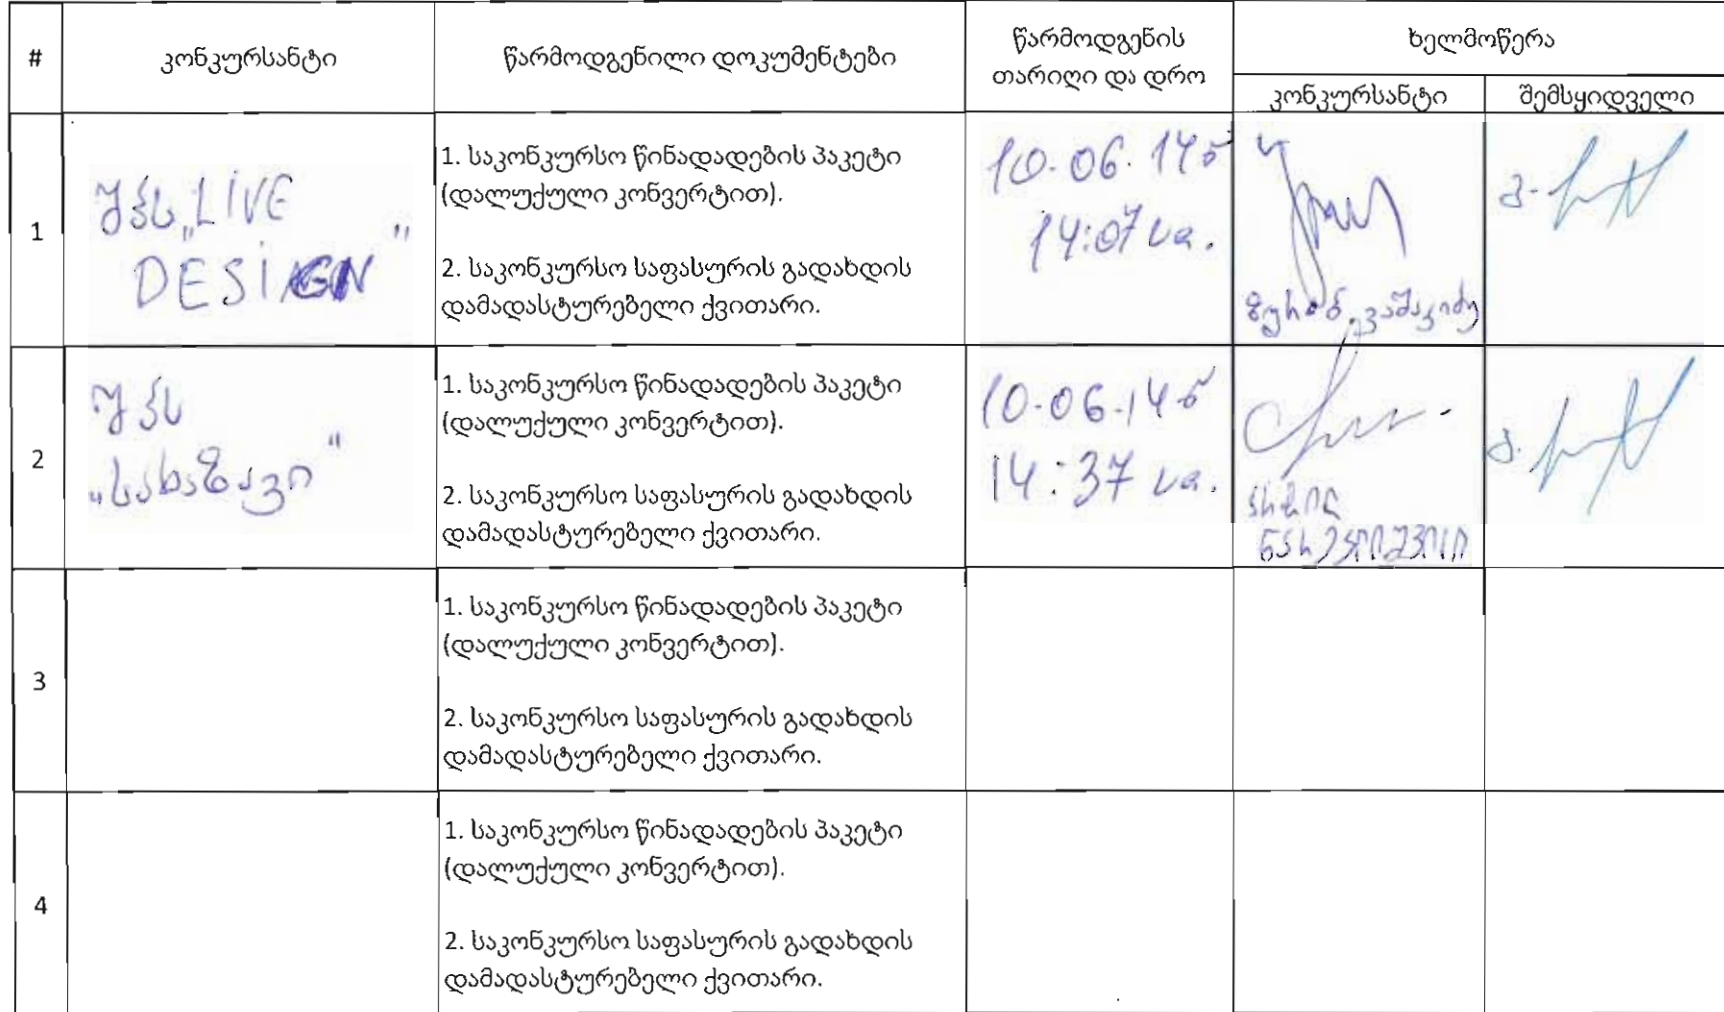 #
კონკურსანტი
წარმოდგენილი დოკუმენტები
წარმოდგენის
თარიღი და დრო
ხელმოწერა
კონკურსანტი
შემსყიდველი
1
შპს „LIVE
DESIGN"
1. საკონკურსო წინადადების პაკეტი
(დალუქული კონვერტით).
2. საკონკურსო საფასურის გადახდის
დამადასტურებელი ქვითარი.
10.06.14წ
14:07 სთ.
ზურაბ ვაშაკიძე
2
შპს
„სახაზავი"
1. საკონკურსო წინადადების პაკეტი
(დალუქული კონვერტით).
2. საკონკურსო საფასურის გადახდის
დამადასტურებელი ქვითარი.
10.06.14წ
14:37 სთ.
3
1. საკონკურსო წინადადების პაკეტი
(დალუქული კონვერტით).
2. საკონკურსო საფასურის გადახდის
დამადასტურებელი ქვითარი.
4
1. საკონკურსო წინადადების პაკეტი
(დალუქული კონვერტით).
2. საკონკურსო საფასურის გადახდის
დამადასტურებელი ქვითარი.